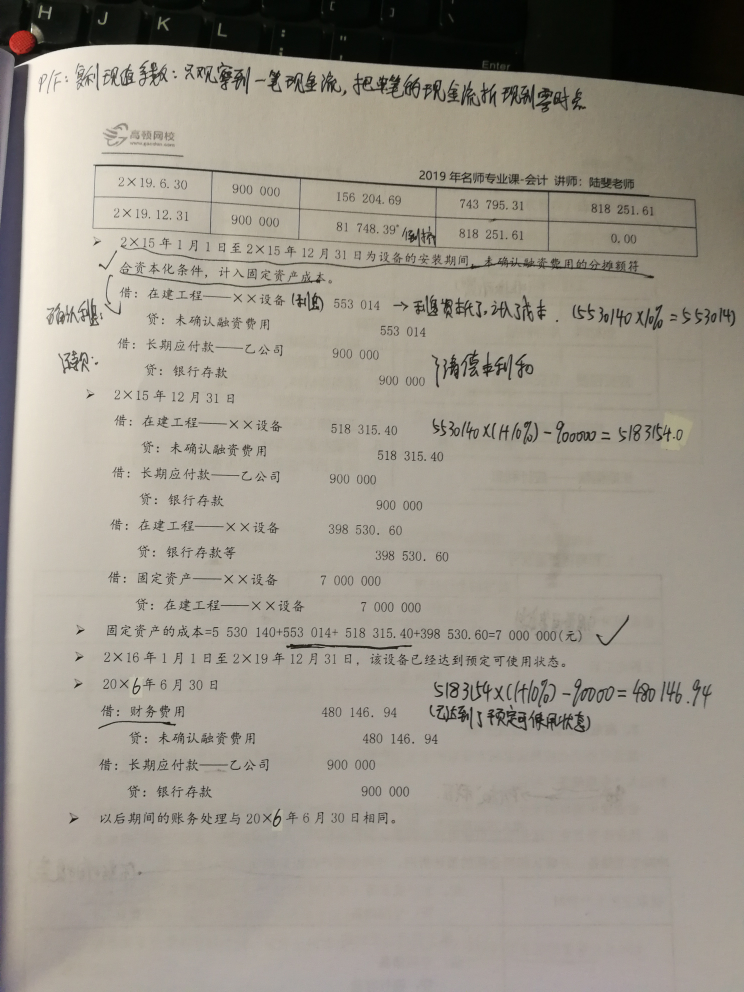 H J K L
Enter
P/F：复利现值系数：只观察到一笔现金流，把单笔的现金流折现到零时点
高顿网校
2019年名师专业课-会计 讲师：陆斐老师
2×19.6.30 900 000 156 204.69 743 795.31 818 251.61
2×19.12.31 900 000 81 748.39* 倒挤 818 251.61 0.00
➢ 2×15年1月1日至2×15年12月31日为设备的安装期间，未确认融资费用的分摊额符
合资本化条件，计入固定资产成本。
确认利息： 借：在建工程——××设备（利息） 553 014 → 利息资本化了，计入了成本．（5530140×10%=553014）
贷：未确认融资费用 553 014
还款： 借：长期应付款——乙公司 900 000
贷：银行存款 900 000 清偿本利和
➢ 2×15年12月31日
借：在建工程——××设备 518 315.40 5530140×(1+10%)-900000=5183154.0
贷：未确认融资费用 518 315.40
借：长期应付款——乙公司 900 000
贷：银行存款 900 000
借：在建工程——××设备 398 530.60
贷：银行存款等 398 530.60
借：固定资产——××设备 7 000 000
贷：在建工程——××设备 7 000 000
➢ 固定资产的成本=5 530 140+553 014+ 518 315.40+398 530.60=7 000 000(元)
➢ 2×16年1月1日至2×19年12月31日，该设备已经达到预定可使用状态。
➢ 20×6年6月30日 5183154×(1+10%)-90000=480146.94
借：财务费用 480 146.94 (已达到了预定可使用状态)
贷：未确认融资费用 480 146.94
借：长期应付款——乙公司 900 000
贷：银行存款 900 000
➢ 以后期间的账务处理与20×6年6月30日相同。